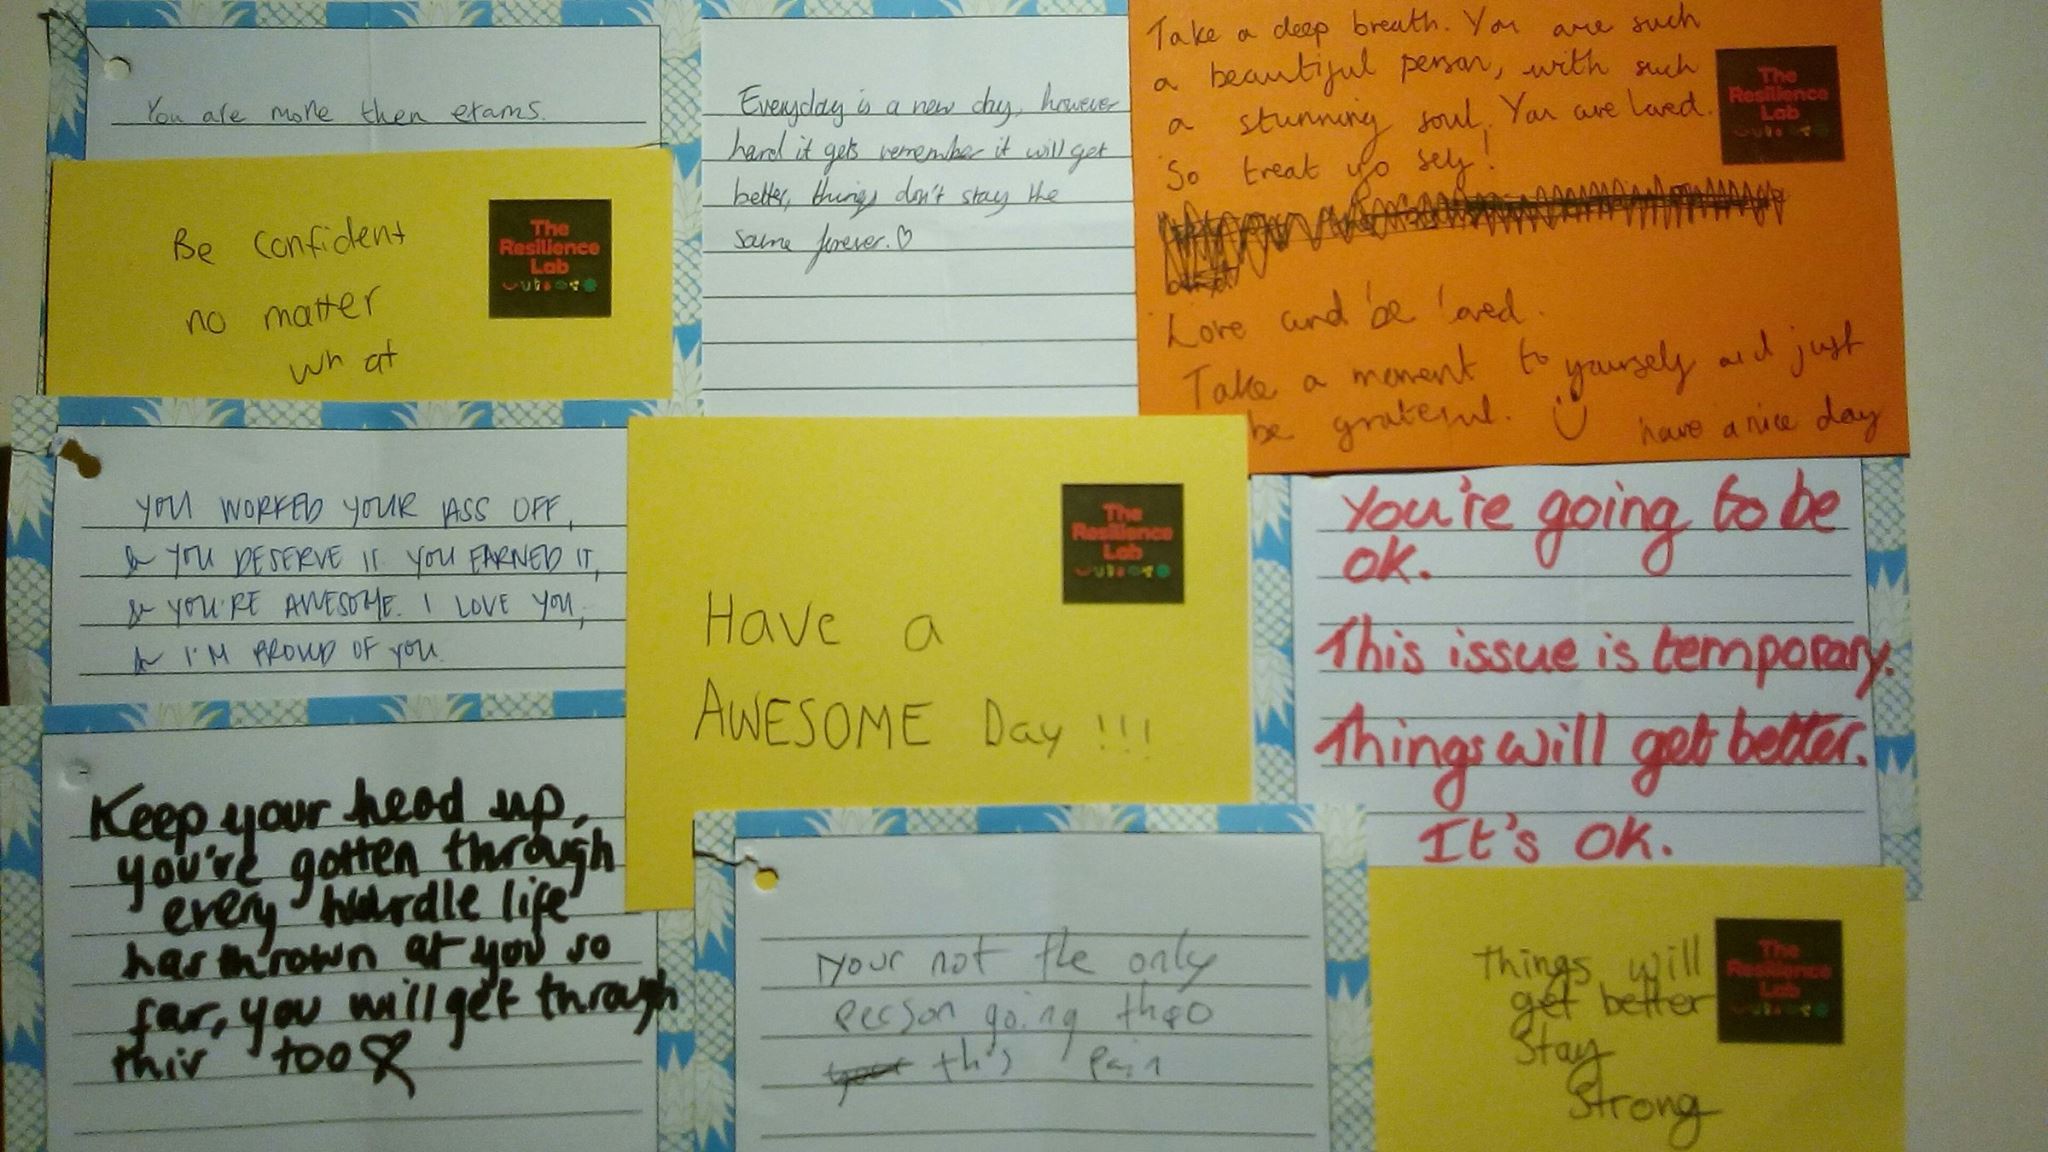 You are more then exams.
Be Confident
no matter
what
The
Resilience
Lab
Everyday is a new day, however
hard it gets remember it will get
better, things don't stay the
same forever.♡
Take a deep breath. You are such
a beautiful person, with such
a stunning soul. You are loved.
So treat yo self!
Love and be loved.
Take a moment to yourself and just
be grateful. have a nice day
The
Resilience
Lab
YOU WORKED YOUR ASS OFF,
& YOU DESERVE IT. YOU EARNED IT,
& YOU'RE AWESOME. I LOVE YOU,
& I'M PROUD OF YOU.
Have a
AWESOME Day !!!
The
Resilience
Lab
You're going to be
OK.
This issue is temporary.
Things will get better.
It's OK.
Keep your head up,
you're gotten through
every hurdle life
has thrown at you so
far, you will get through
this too
your not the only
person going thro
this pain
things will
get better
Stay
Strong
The
Resilience
Lab